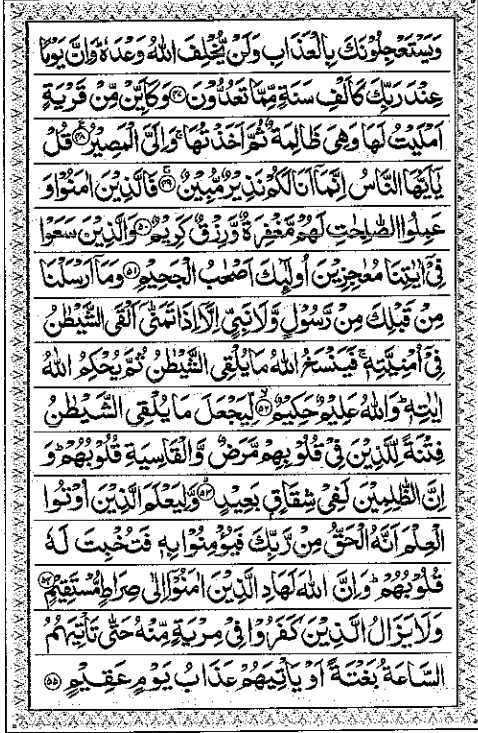 وَيَسْتَعْجِلُوْنَكَ بِالْعَذَابِ وَلَنْ يُّخْلِفَ اللّٰهُ وَعْدَهٗ ؕ وَاِنَّ يَوْمًا
عِنْدَ رَبِّكَ كَاَلْفِ سَنَةٍ مِّمَّا تَعُدُّوْنَ ﴿۴۷﴾ وَكَاَيِّنْ مِّنْ قَرْيَةٍ
اَمْلَيْتُ لَهَا وَهِيَ ظَالِمَةٌ ثُمَّ اَخَذْتُهَا ۚ وَاِلَيَّ الْمَصِيْرُ ﴿۴۸﴾ قُلْ
يٰۤاَيُّهَا النَّاسُ اِنَّمَاۤ اَنَا لَكُمْ نَذِيْرٌ مُّبِيْنٌ ﴿۴۹﴾ فَالَّذِيْنَ اٰمَنُوْا وَ
عَمِلُوا الصّٰلِحٰتِ لَهُمْ مَّغْفِرَةٌ وَّرِزْقٌ كَرِيْمٌ ﴿۵۰﴾ وَالَّذِيْنَ سَعَوْا
فِيْۤ اٰيٰتِنَا مُعٰجِزِيْنَ اُولٰٓئِكَ اَصْحٰبُ الْجَحِيْمِ ﴿۵۱﴾ وَمَاۤ اَرْسَلْنَا
مِنْ قَبْلِكَ مِنْ رَّسُوْلٍ وَّلَا نَبِيٍّ اِلَّاۤ اِذَا تَمَنّٰۤى اَلْقَى الشَّيْطٰنُ
فِيْۤ اُمْنِيَّتِهٖ ۚ فَيَنْسَخُ اللّٰهُ مَا يُلْقِي الشَّيْطٰنُ ثُمَّ يُحْكِمُ اللّٰهُ
اٰيٰتِهٖ ؕ وَاللّٰهُ عَلِيْمٌ حَكِيْمٌ ﴿۵۲﴾ لِّيَجْعَلَ مَا يُلْقِي الشَّيْطٰنُ
فِتْنَةً لِّلَّذِيْنَ فِيْ قُلُوْبِهِمْ مَّرَضٌ وَّالْقَاسِيَةِ قُلُوْبُهُمْ ؕ وَ
اِنَّ الظّٰلِمِيْنَ لَفِيْ شِقَاقٍۭ بَعِيْدٍ ﴿۵۳﴾ وَّلِيَعْلَمَ الَّذِيْنَ اُوْتُوا
الْعِلْمَ اَنَّهُ الْحَقُّ مِنْ رَّبِّكَ فَيُؤْمِنُوْا بِهٖ فَتُخْبِتَ لَهٗ
قُلُوْبُهُمْ ؕ وَاِنَّ اللّٰهَ لَهَادِ الَّذِيْنَ اٰمَنُوْۤا اِلٰى صِرَاطٍ مُّسْتَقِيْمٍ ﴿۵۴﴾
وَلَا يَزَالُ الَّذِيْنَ كَفَرُوْا فِيْ مِرْيَةٍ مِّنْهُ حَتّٰى تَاْتِيَهُمُ
السَّاعَةُ بَغْتَةً اَوْ يَاْتِيَهُمْ عَذَابُ يَوْمٍ عَقِيْمٍ ﴿۵۵﴾